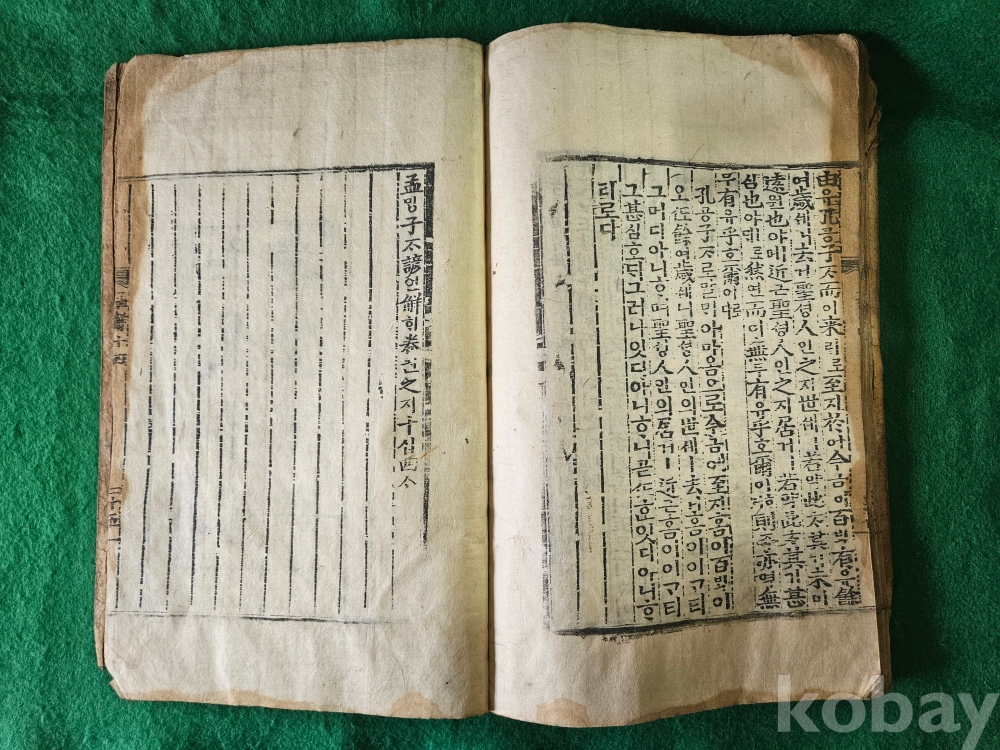 由유孔공子ᄌᆞ而이來ᄅᆡ로至지於어今금이百ᄇᆡᆨ有유餘
여歲셰니去거聖셩人인之지世셰ㅣ若약此ᄎᆞ其기未미
遠원也야ㅣ며近근聖셩人인之지居거ㅣ若약此ᄎᆞ其기甚
심也야ㅣ로ᄃᆡ然연而이無무有유乎호爾이ᄒᆞ니則즉亦역無
무有유乎호爾이로다
孔공子ᄌᆞ로말ᄆᆡ아마음으로今금에至지홈이百ᄇᆡᆨ이
오餘여歲셰니聖셩人인의世셰ㅣ去거홈이이ᄀᆞ티
그머디아니ᄒᆞ며聖셩人인의居거ㅣ近근홈이이ᄀᆞ티
그甚심호ᄃᆡ그러나잇디아니ᄒᆞ니곧ᄯᅩᄒᆞᆫ잇디아니ᄒᆞ
리로다
孟ᄆᆡᆼ子ᄌᆞ諺언解ᄒᆡ卷권之지十십四ᄉᆞ
kobay